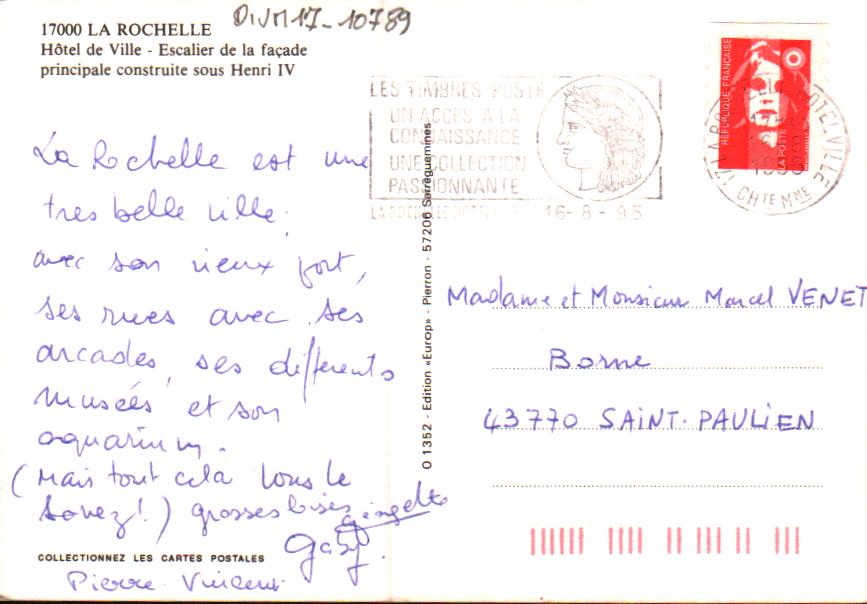 DIVM17-10789
17000 LA ROCHELLE
Hôtel de Ville - Escalier de la façade
principale construite sous Henri IV
La Rochelle est une
tres belle ville.
avec son vieux port,
ses rues avec ses
arcades, ses differents
musées et son
aquarium.
(Mais tout cela vous le
savez!) grosses bises
Gaby.
COLLECTIONNEZ LES CARTES POSTALES
Pierre Vincent
O 1352 - Edition «Europ» - Pierron - 57206 Sarreguemines
LES TIMBRES-POSTE
UN ACCES A LA
CONNAISSANCE
UNE COLLECTION
PASSIONNANTE
LA ROCHELLE HOTEL
16-8-95
RÉPUBLIQUE FRANÇAISE
LA POSTE
HOTEL VILLE
CHTE MME
Madame et Monsieur Marcel VENET
Borne
43770 SAINT-PAULIEN